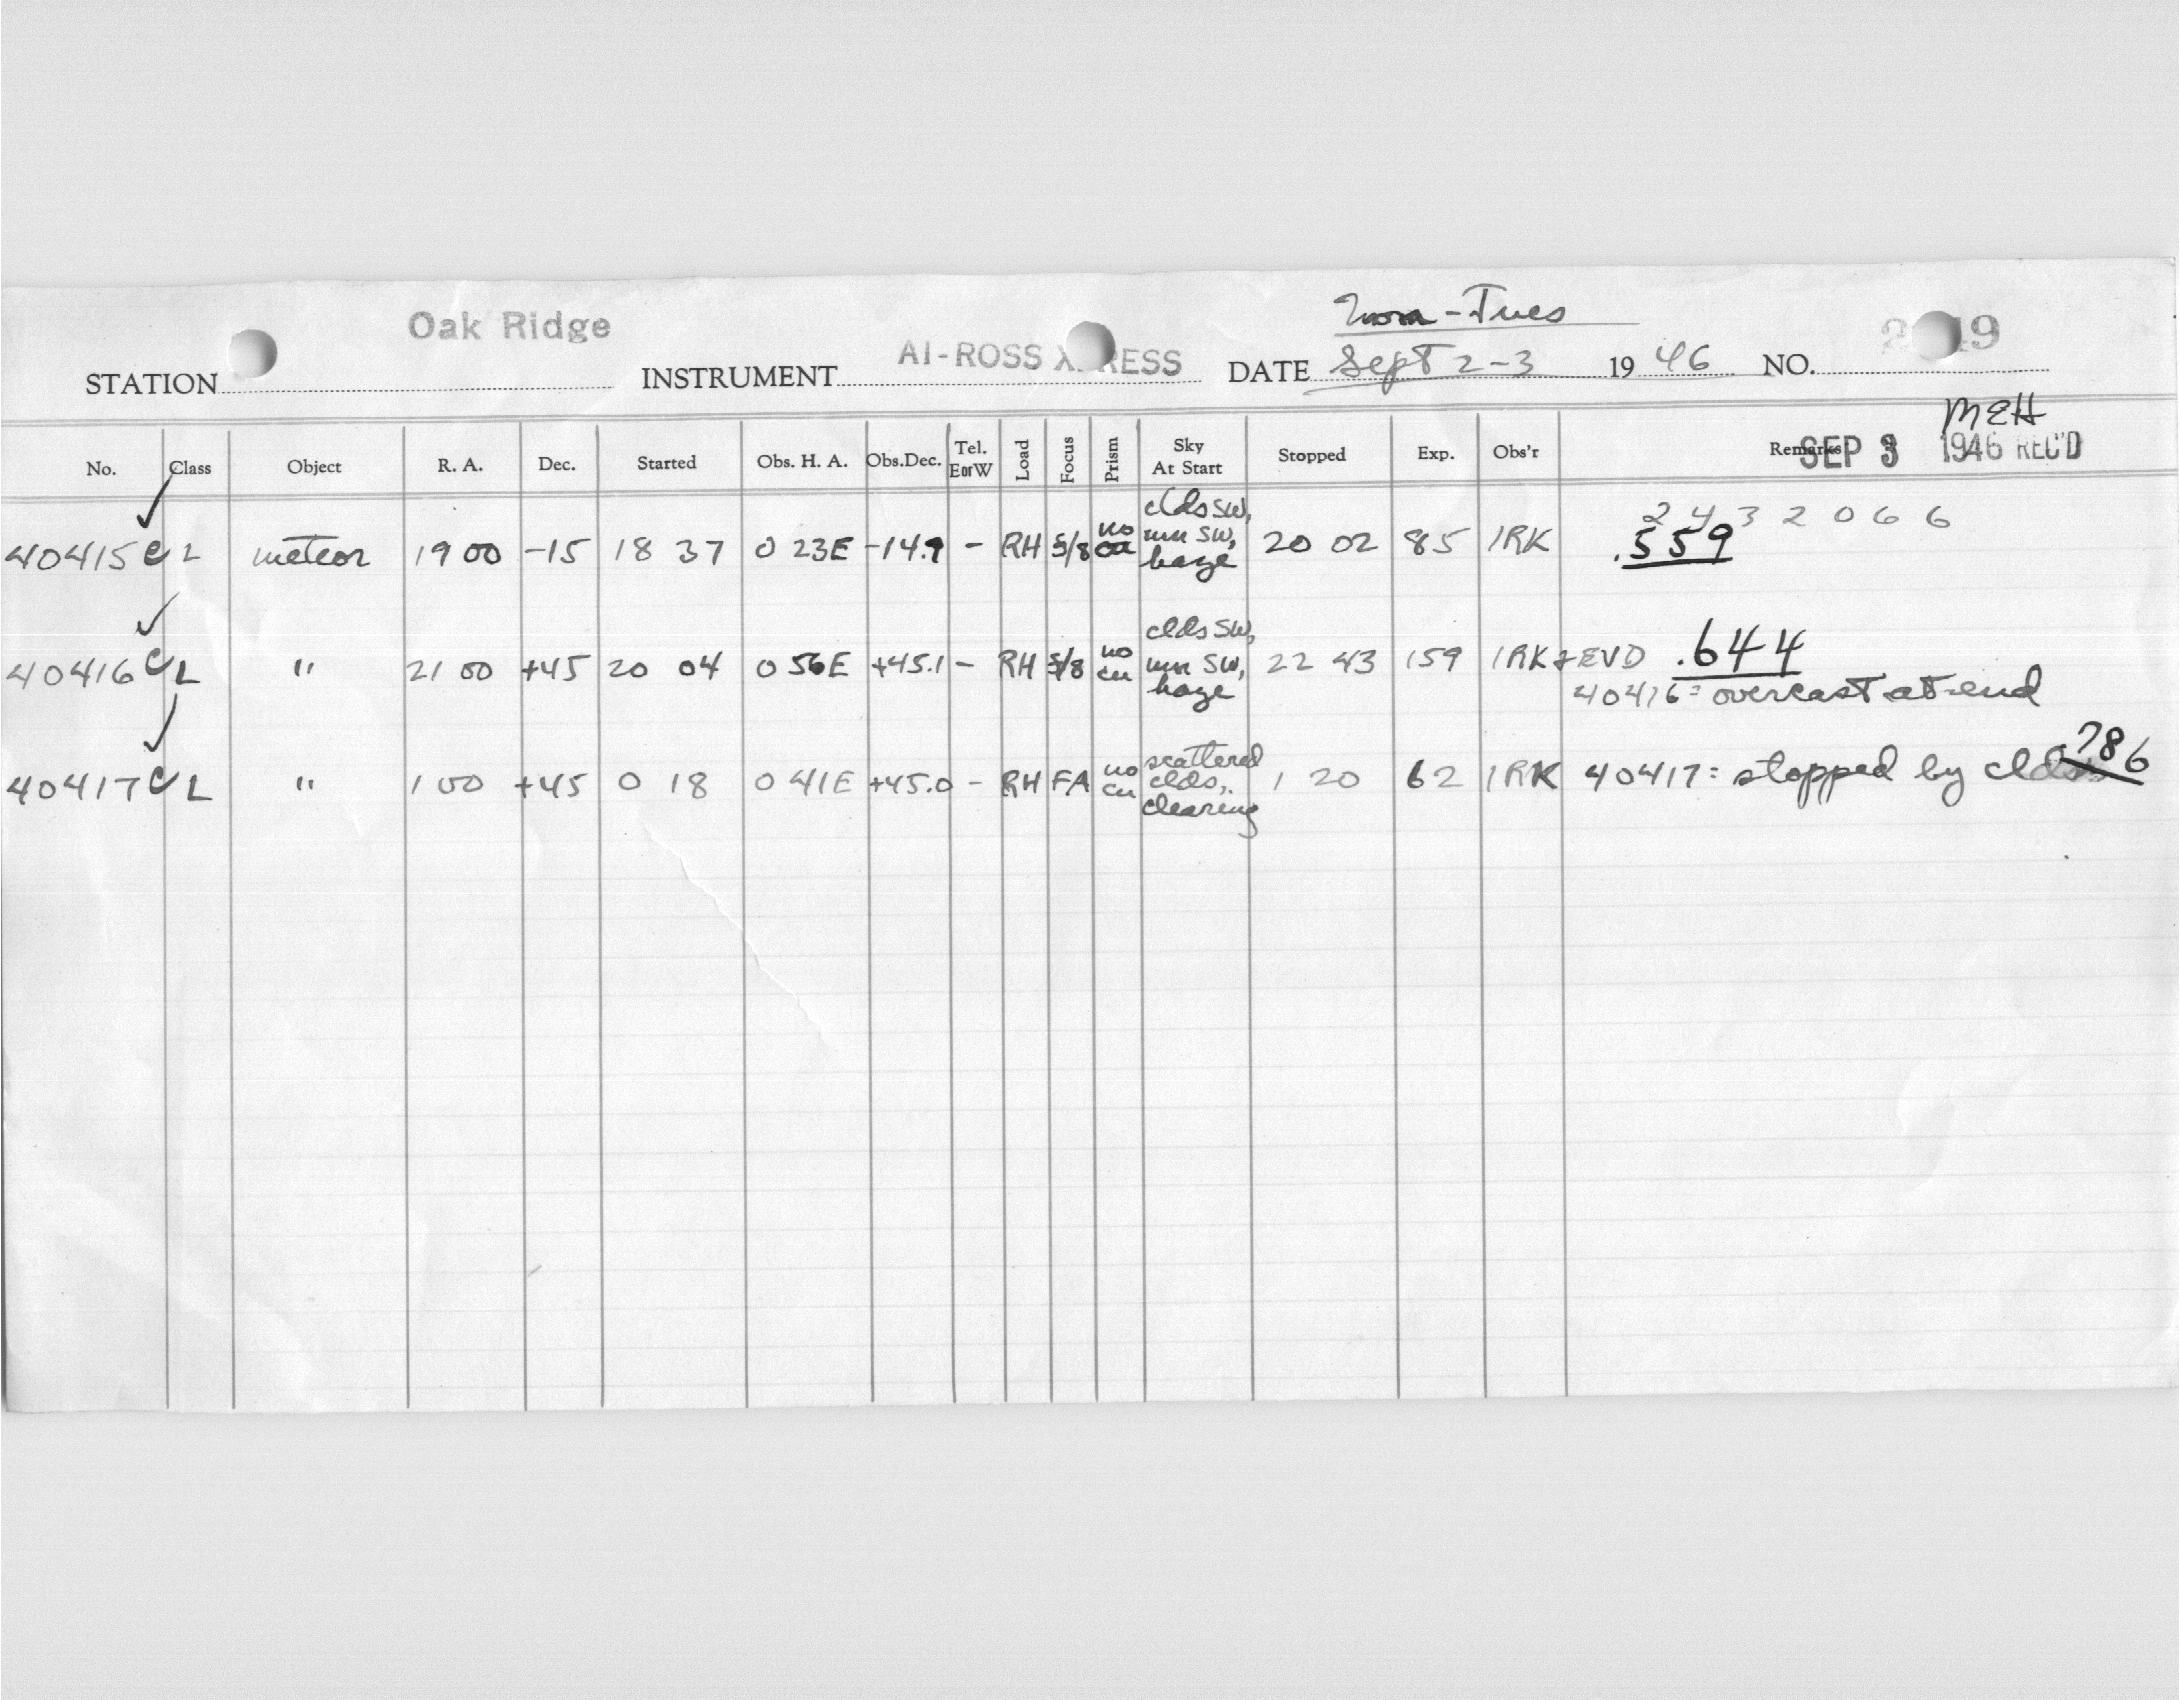 Oak Ridge
Mon - Tues
STATION INSTRUMENT AI-ROSS DATE Sept 2-3 1946 NO.
MEH
No. Class Object R. A. Dec. Started Obs. H. A. Obs.Dec. Tel. E or W Load Focus Prism Sky At Start Stopped Exp. Obs'r Remarks SEP 3 1946 REC'D
2432066
40415 C L meteor 19 00 -15 18 37 0 23E -14.9 - RH 5/8 no cu clds SW, mn SW, haze 20 02 85 IRK .559
40416 C L " 21 00 +45 20 04 0 56E +45.1 - RH 5/8 no cu clds SW, mn SW, haze 22 43 159 IRK + EVD .644
40416 = overcast at end
40417 C L " 1 00 +45 0 18 0 41E +45.0 - RH FA no cu scattered clds, clearing 1 20 62 IRK 40417: stopped by clds .786